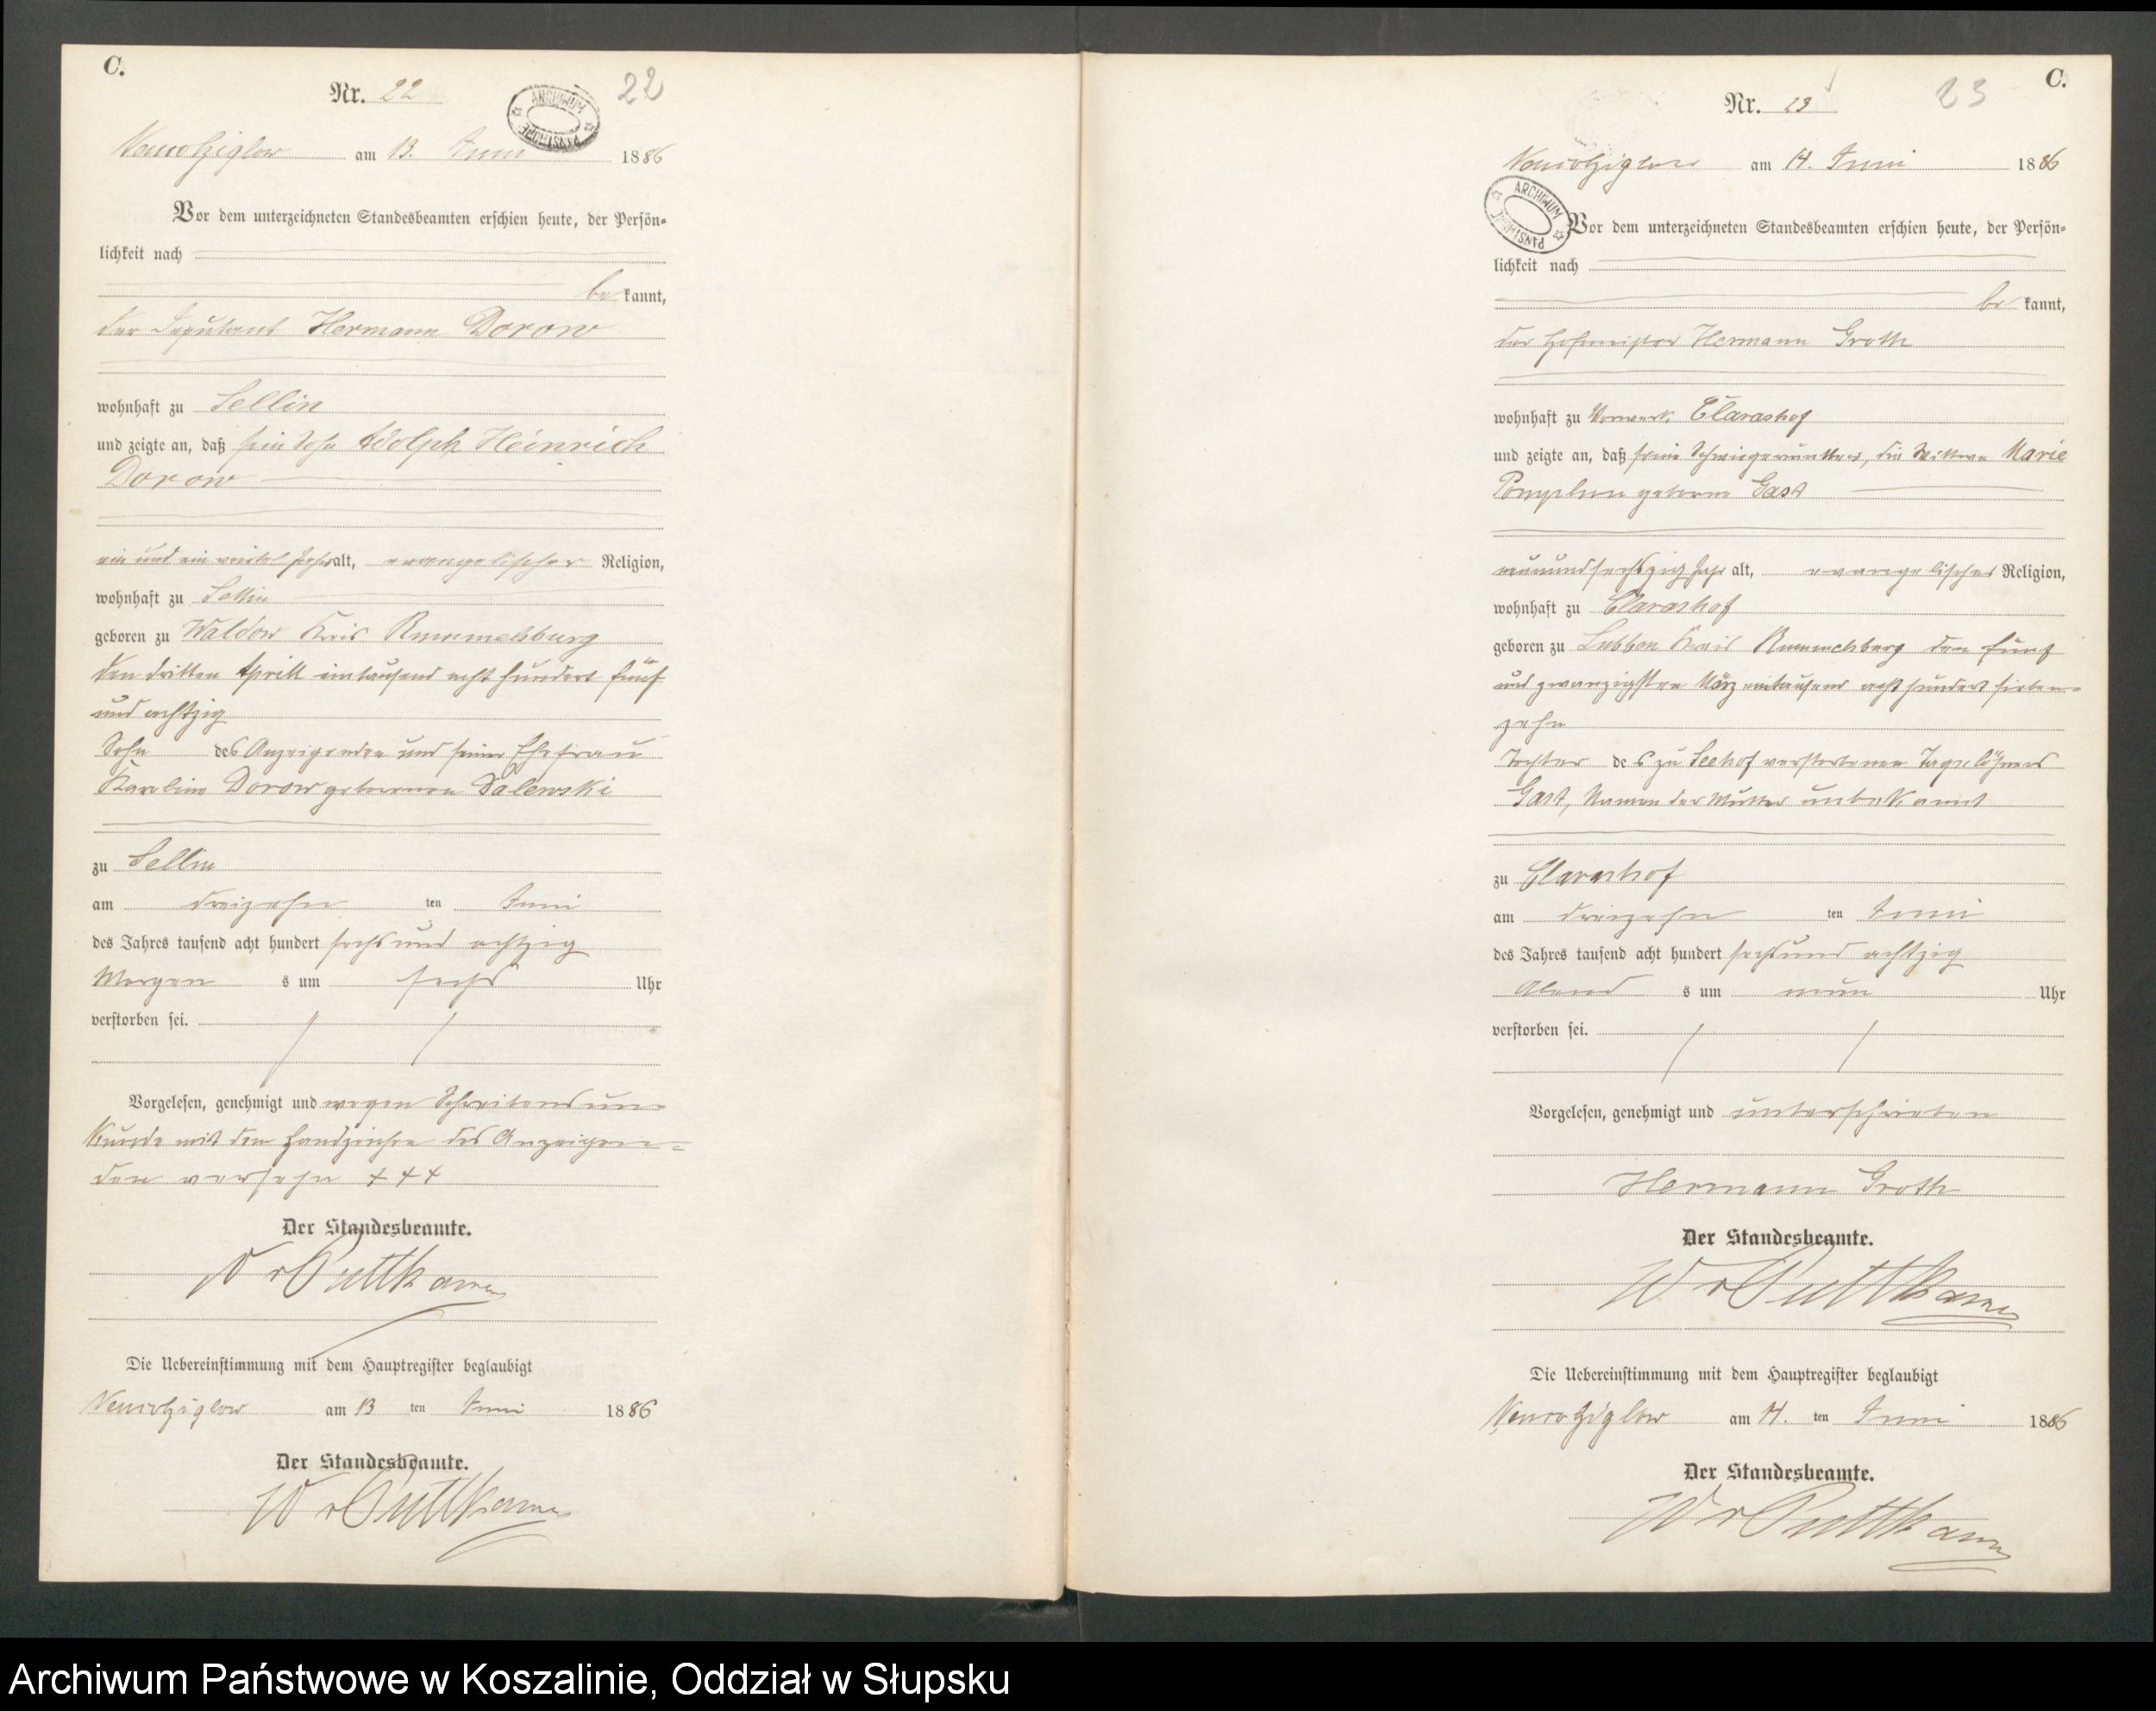 C.
Nr. 22
22
ARCHIWUM PAŃSTWOWE
am 13. Juni 1886
Vor dem unterzeichneten Standesbeamten erschien heute, der Persön-
lichkeit nach
be kannt,
der Deputant Hermann Dorow
wohnhaft zu Sellin
und zeigte an, daß sein Sohn Adolph Heinrich
Dorow
ein und ein viertel Jahr alt, evangelischer Religion,
wohnhaft zu Sellin
geboren zu Waldow Kreis Rummelsburg
den dritten Aprill eintausend acht hundert fünf
und achtzig
Sohn des Anzeigenden und seiner Ehefrau
Karoline Dorow geborenen Salewski
zu Sellin
am dreizehn ten Juni
des Jahres tausend acht hundert sechs und achtzig
Morgen s um sechs Uhr
verstorben sei.
Vorgelesen, genehmigt und wegen Schreibensun-
kunde mit dem Handzeichen des Anzeigen=
den versehn + + +
Der Standesbeamte.
W v Puttkamer
Die Uebereinstimmung mit dem Hauptregister beglaubigt
am 13 ten Juni 1886
Der Standesbeamte.
W v Puttkamer
C.
Nr. 23
23
am 14. Juni 1886
ARCHIWUM PAŃSTWOWE
Vor dem unterzeichneten Standesbeamten erschien heute, der Persön-
lichkeit nach
be kannt,
der Hofmeister Hermann Groth
wohnhaft zu Vorwerk Clarashof
und zeigte an, daß seine Schwiegermutter, die Wittwe Marie
geborne Gast
neunundsechszig Jahr alt, evangelischer Religion,
wohnhaft zu Clarashof
geboren zu Lubben Kreis Rummelsburg den fünf
und zwanzigsten März eintausend acht hundert sieben=
zehn
Tochter des zu Seehof verstorbenen Tagelöhners
Gast, Namen der Mutter unbekannt
zu Clarashof
am dreizehn ten Juni
des Jahres tausend acht hundert sechs und achtzig
Abend s um neun Uhr
verstorben sei.
Vorgelesen, genehmigt und unterschrieben
Hermann Groth
Der Standesbeamte.
W v Puttkamer
Die Uebereinstimmung mit dem Hauptregister beglaubigt
am 14. ten Juni 1886
Der Standesbeamte.
W v Puttkamer
Archiwum Państwowe w Koszalinie, Oddział w Słupsku